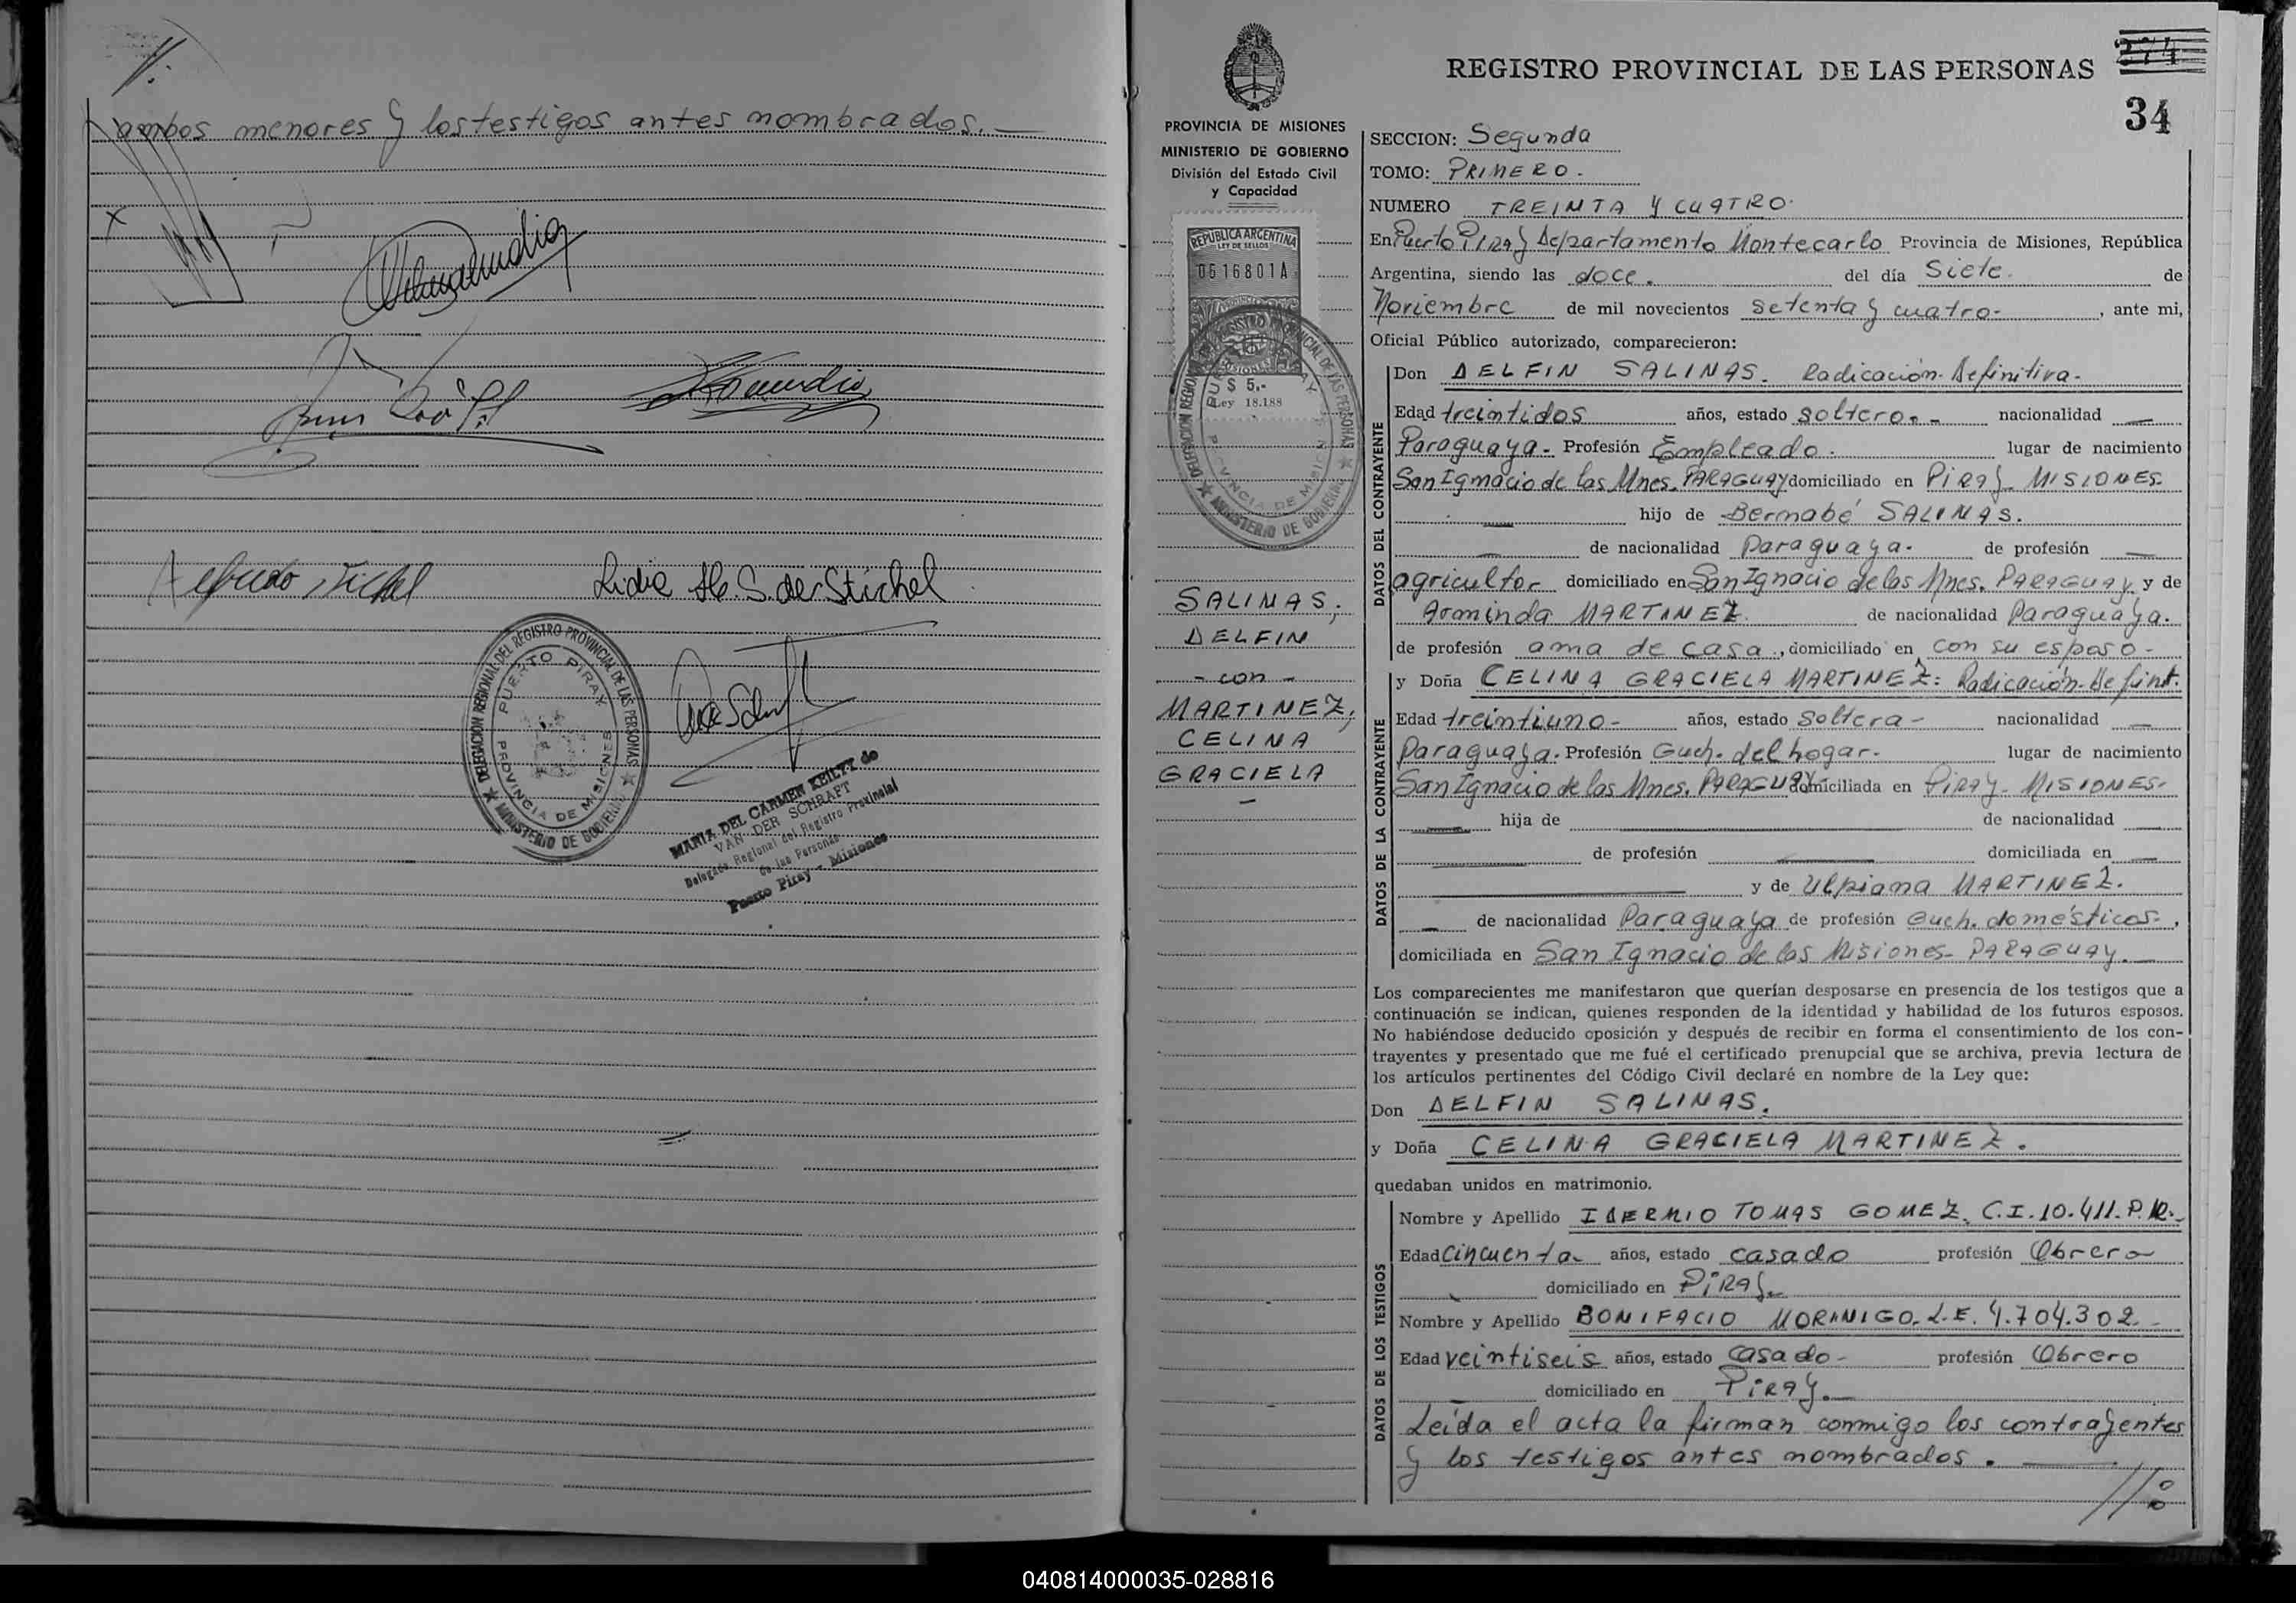 ambos menores y los testigos antes nombrados.
Lidia M. S. de Stichel
DELEGACION REGIONAL DEL REGISTRO PROVINCIAL DE LAS PERSONAS
PUERTO PIRAY
PROVINCIA DE MISIONES
MINISTERIO DE GOBIERNO
MARIA DEL CARMEN KEILTY de
VAN DER SCHRAFT
Delegada Regional del Registro Provincial
de las Personas
Puerto Piray - Misiones
REGISTRO PROVINCIAL DE LAS PERSONAS
274
34
PROVINCIA DE MISIONES
MINISTERIO DE GOBIERNO
División del Estado Civil
y Capacidad
REPUBLICA ARGENTINA
LEY DE SELLOS
0516801A
$ 5.-
Ley 18.188
SALINAS,
DELFIN
- con -
MARTINEZ,
CELINA
GRACIELA
SECCION: Segunda
TOMO: PRIMERO.
NUMERO TREINTA Y CUATRO.
En Puerto Piray Departamento Montecarlo Provincia de Misiones, República
Argentina, siendo las doce. del día Siete. de
Noviembre de mil novecientos setenta y cuatro- , ante mi,
Oficial Público autorizado, comparecieron:
DATOS DEL CONTRAYENTE
Don DELFIN SALINAS. Radicación-Definitiva-
Edad treintidos años, estado soltero.- nacionalidad
Paraguaya- Profesión Empleado. lugar de nacimiento
San Ignacio de las Mnes. PARAGUAY domiciliado en PIRAY- MISIONES.
hijo de Bernabé SALINAS.
de nacionalidad Paraguaya. de profesión
agricultor domiciliado en San Ignacio de las Mnes. PARAGUAY y de
Arminda MARTINEZ. de nacionalidad Paraguaya.
de profesión ama de casa, domiciliado en con su esposo-
DATOS DE LA CONTRAYENTE
y Doña CELINA GRACIELA MARTINEZ: Radicación-Definit.
Edad treintiuno- años, estado soltera- nacionalidad
Paraguaya. Profesión Queh. del hogar. lugar de nacimiento
San Ignacio de las Mnes. PARAGUAY domiciliada en PIRAY- MISIONES-
hija de de nacionalidad
de profesión domiciliada en
y de Ulpiana MARTINEZ.
de nacionalidad Paraguaya de profesión Queh. domésticos.,
domiciliada en San Ignacio de las Misiones- PARAGUAY.
Los comparecientes me manifestaron que querían desposarse en presencia de los testigos que a
continuación se indican, quienes responden de la identidad y habilidad de los futuros esposos.
No habiéndose deducido oposición y después de recibir en forma el consentimiento de los con-
trayentes y presentado que me fué el certificado prenupcial que se archiva, previa lectura de
los artículos pertinentes del Código Civil declaré en nombre de la Ley que:
Don DELFIN SALINAS.
y Doña CELINA GRACIELA MARTINEZ.
quedaban unidos en matrimonio.
DATOS DE LOS TESTIGOS
Nombre y Apellido IDERMIO TOMAS GOMEZ. C.I. 10.411. P.M.-
Edad Cincuenta años, estado casado profesión Obrero
domiciliado en PIRAY-
Nombre y Apellido BONIFACIO MORINIGO- L.E. 4.704.302-
Edad veintiseis años, estado casado- profesión Obrero
domiciliado en PIRAY.
Leída el acta la firman conmigo los contrayentes
y los testigos antes nombrados.
040814000035-028816